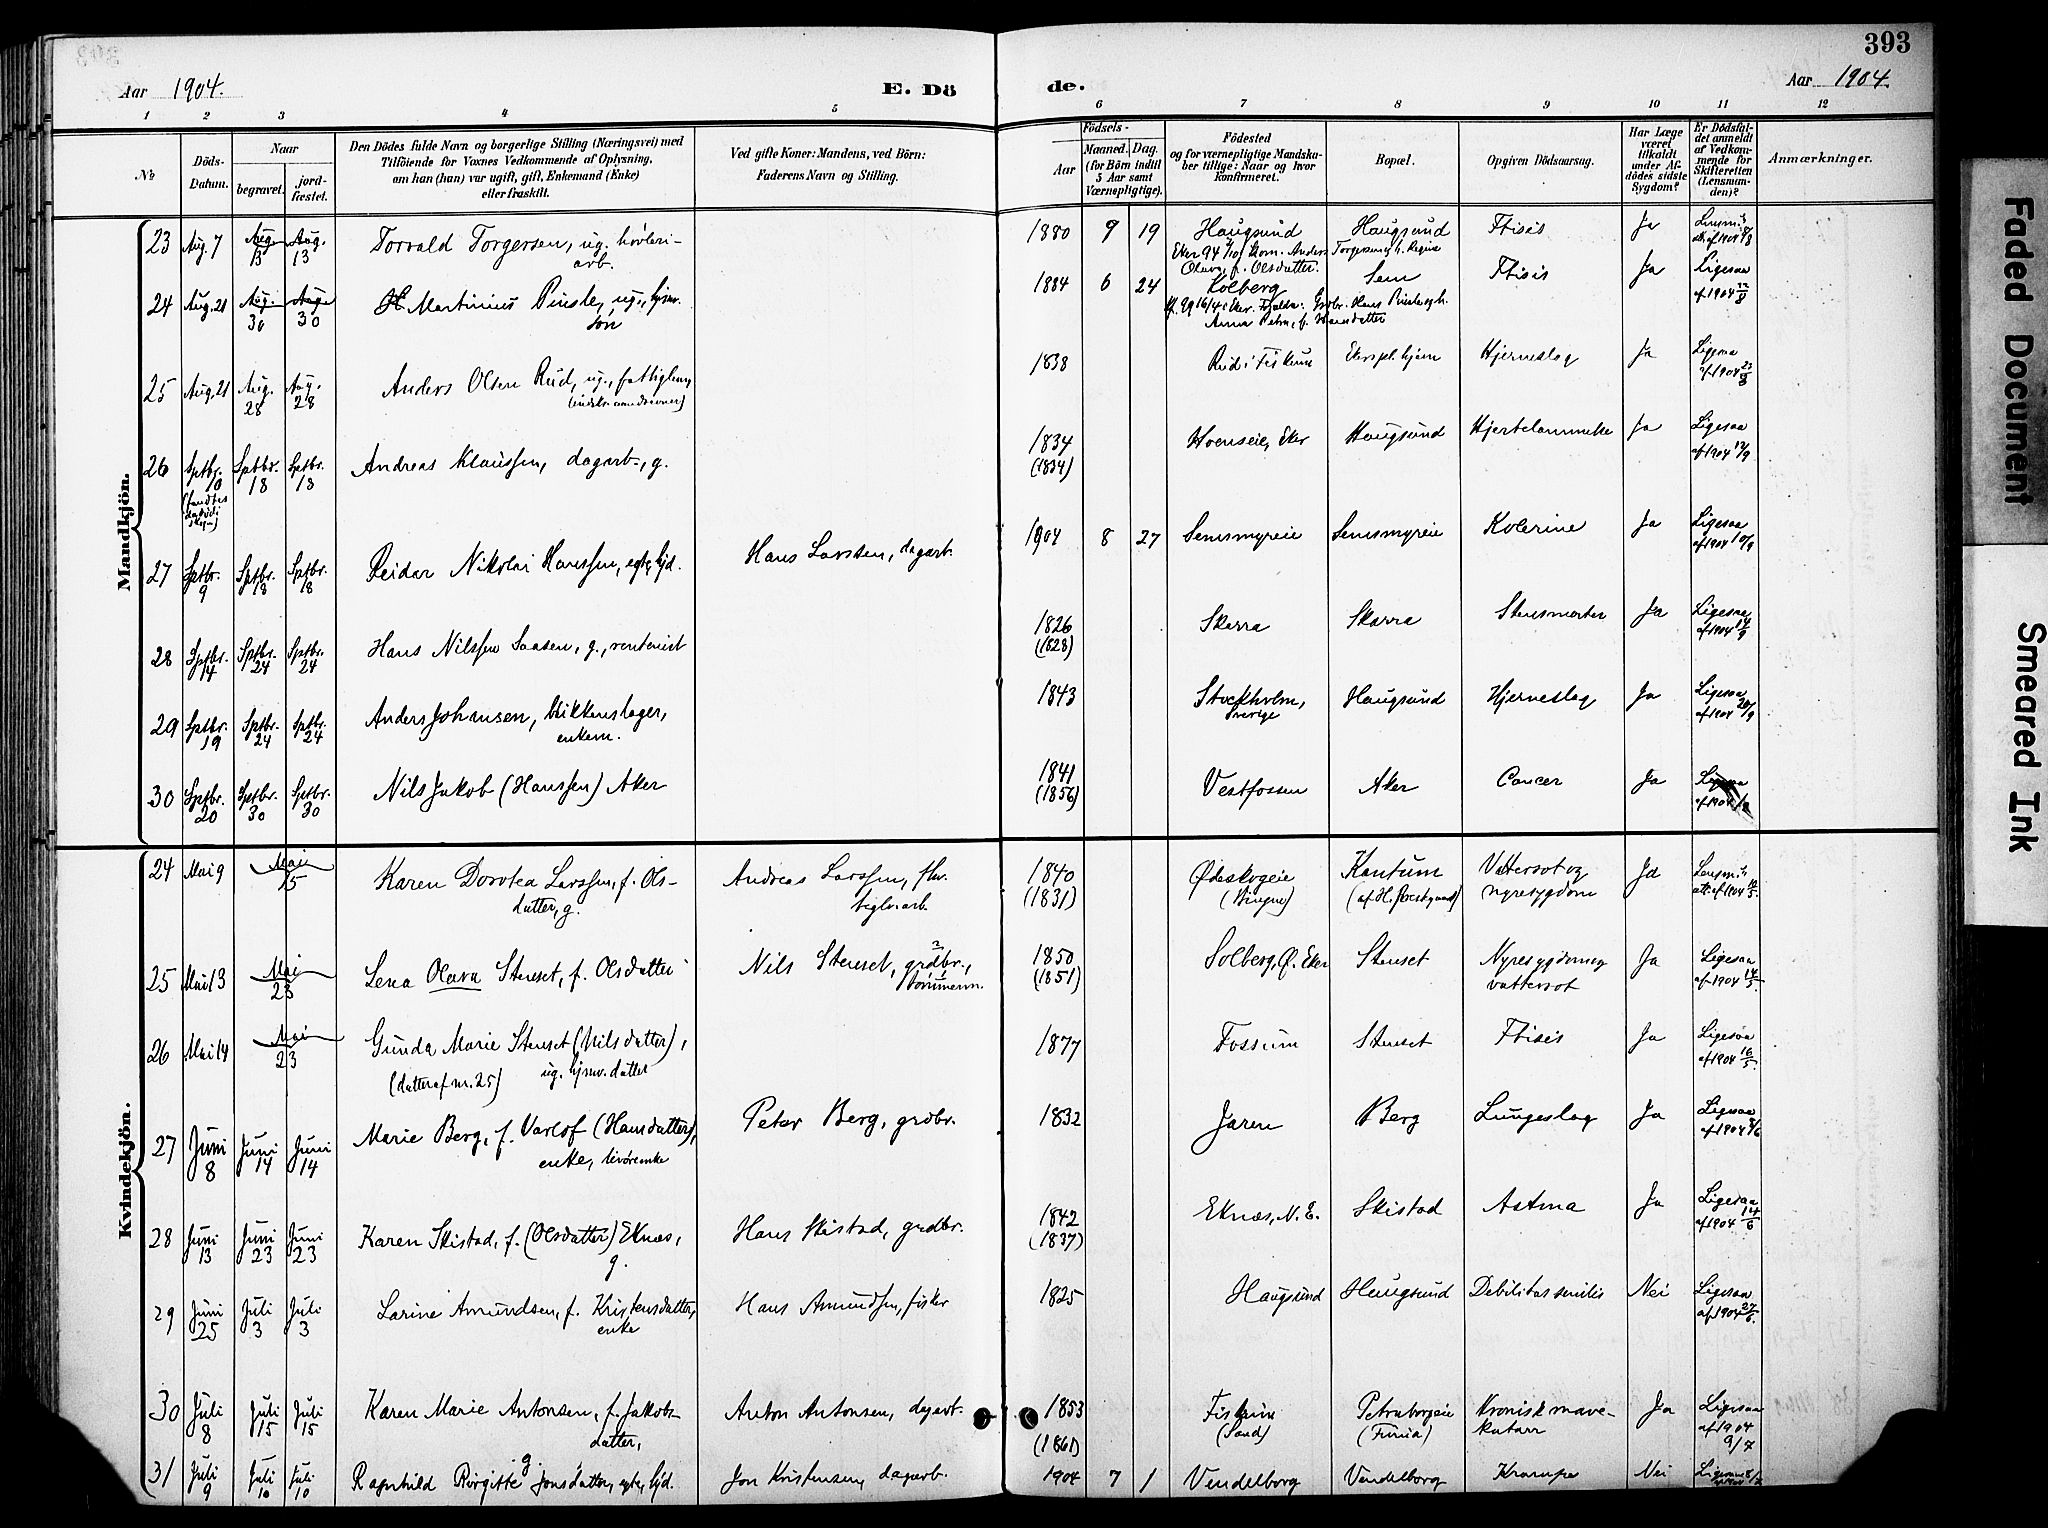 393
Aar 1904.
E. Dö
de.
Aar 1904.
1 2 3 4 5 6 7 8 9 10 11 12
No
Döds-
Datum.
Naar
begravet.
jord-
fæstet.
Den Dödes fulde Navn og borgerlige Stilling (Næringsvei) med
Tilföiende for Voxnes Vedkommende af Oplysning,
om han (hun) var ugift, gift, Enkemand (Enke)
eller fraskilt.
Ved gifte Koner: Mandens, ved Börn:
Faderens Navn og Stilling.
Födsels-
Aar
Maaned. Dag.
(for Börn indtil
5 Aar samt
Værnepligtige).
Födested
og for værnepligtige Mandska-
ber tillige: Naar og hvor
konfirmeret.
Bopæl.
Opgiven Dödsaarsag.
Har Læge
været
tilkaldt
under Af-
dödes sidste
Sygdom?
Er Dödsfal-
det anmeldt
af Vedkom-
mende for
Skifteretten
(Lensman-
den)?
Anmærkninger.
Mandkjön.
23 Aug. 7 Aug. 13 Aug. 13 Torvald Torgersen, ug. høvleri-
arb.
1880 9 19 Haugsund Haugsund Ftisis Ja
24 Aug. 21 Aug. 30 Aug. 30 Martinius Pinsle, ug., hjmv.
søn
1884 6 24 Kolberg Sem Ftisis Ja Ligesaa
af 1904 22/8
25 Aug. 21 Aug. 28 Aug. 28 Anders Olsen Rud, ug., fattiglem,
1838 Rud i Fiskum Ekers pl. hjem Hjerneslag Ja Ligesaa
af 1904 23/8
26 Sptbr. 10 Sptbr. 18 Sptbr. 18 Andreas Klaussen, dagarb., g.
1834
(1834)
Hoenseie, Eker Haugsund Hjertelammelse Ja Ligesaa
af 1904 12/9
27 Sptbr. 9 Sptbr. 18 Sptbr. 18 Reidar Nikolai Hanssen, egte, hjd.
Hans Larssen, dagarb.
1904 8 27 Semsmyreie Semsmyreie Kolerine Ja Ligesaa
af 1904 10/9
28 Sptbr. 14 Sptbr. 24 Sptbr. 24 Hans Nilssen Saasen, g., rentenist
1826
(1828)
Skarra Skarra Ja Ligesaa
af 1904 14/9
29 Sptbr. 19 Sptbr. 24 Sptbr. 24 Anders Johansen, blikkenslager,
enkem.
1843 Stockholm,
Sverige
Haugsund Hjerneslag Ja Ligesaa
af 1904 20/9
30 Sptbr. 20 Sptbr. 30 Sptbr. 30 Nils Jakob (Hanssen) Aker
1841
(1856)
Vestfossen Aker Cancer Ja Ligesaa
af 1904
Kvindekjön.
24 Mai 9 Mai 15 Karen Dorotea Larssen, f. Ols-
datter, g.
Andreas Larssen,
teglv. arb.
1840
(1831)
Ødeskogeie Kantum Vattersot og
nyresygdom
Ja
25 Mai 13 Mai 23 Lena Olava Stenset, f. Olsdatter
Nils Stenset, grdbr.,
tømmerm.
1850
(1851)
Solberg, Ø. Eker Stenset Nyresygdom og
vattersot
Ja Ligesaa
af 1904 14/5.
26 Mai 14 Mai 23 Gunda Marie Stenset (Nilsdatter),
(datter af nr. 25) ug. hjmv. datter
1877 Fossum Stenset Ftisis Ja Ligesaa
af 1904 16/5.
27 Juni 8 Juni 14 Juni 14 Marie Berg, f. Varlof (Hansdatter),
enke, livøreenke
Peter Berg, grdbr.
1832 Jaren Berg Lungeslag Ja Ligesaa
af 1904 8/6
28 Juni 13 Juni 23 Juni 23 Karen Skistad, f. (Olsdatter) Eknæs,
g.
Hans Skistad, grdbr.
1842
(1837)
Eknæs, N. E. Skistad Astma Ja Ligesaa
af 1904 14/6
29 Juni 25 Juli 3 Juli 3 Larine Amundsen, f. Kristensdatter,
enke
Hans Amundsen, fisker
1825 Haugsund Haugsund Debilitas senilis Nei Ligesaa
af 1904 27/6.
30 Juli 8 Juli 15 Juli 15 Karen Marie Antonsen, f. Jakobs-
datter,
g.
Anton Antonsen, dagarb.
1853
(1861)
Fiskum
(Sand)
Kronisk mave-
katarr
Ja Ligesaa
af 1904
9/7
31 Juli 9 Juli 10 Juli 10 Ragnhild Birgitte Jonsdatter, egte, hjd.
Jon Kristensen, dagarb.
1904 7 1 Vendelborg Vendelborg Krampe Nei Ligesaa
Faded Document
Smeared Ink